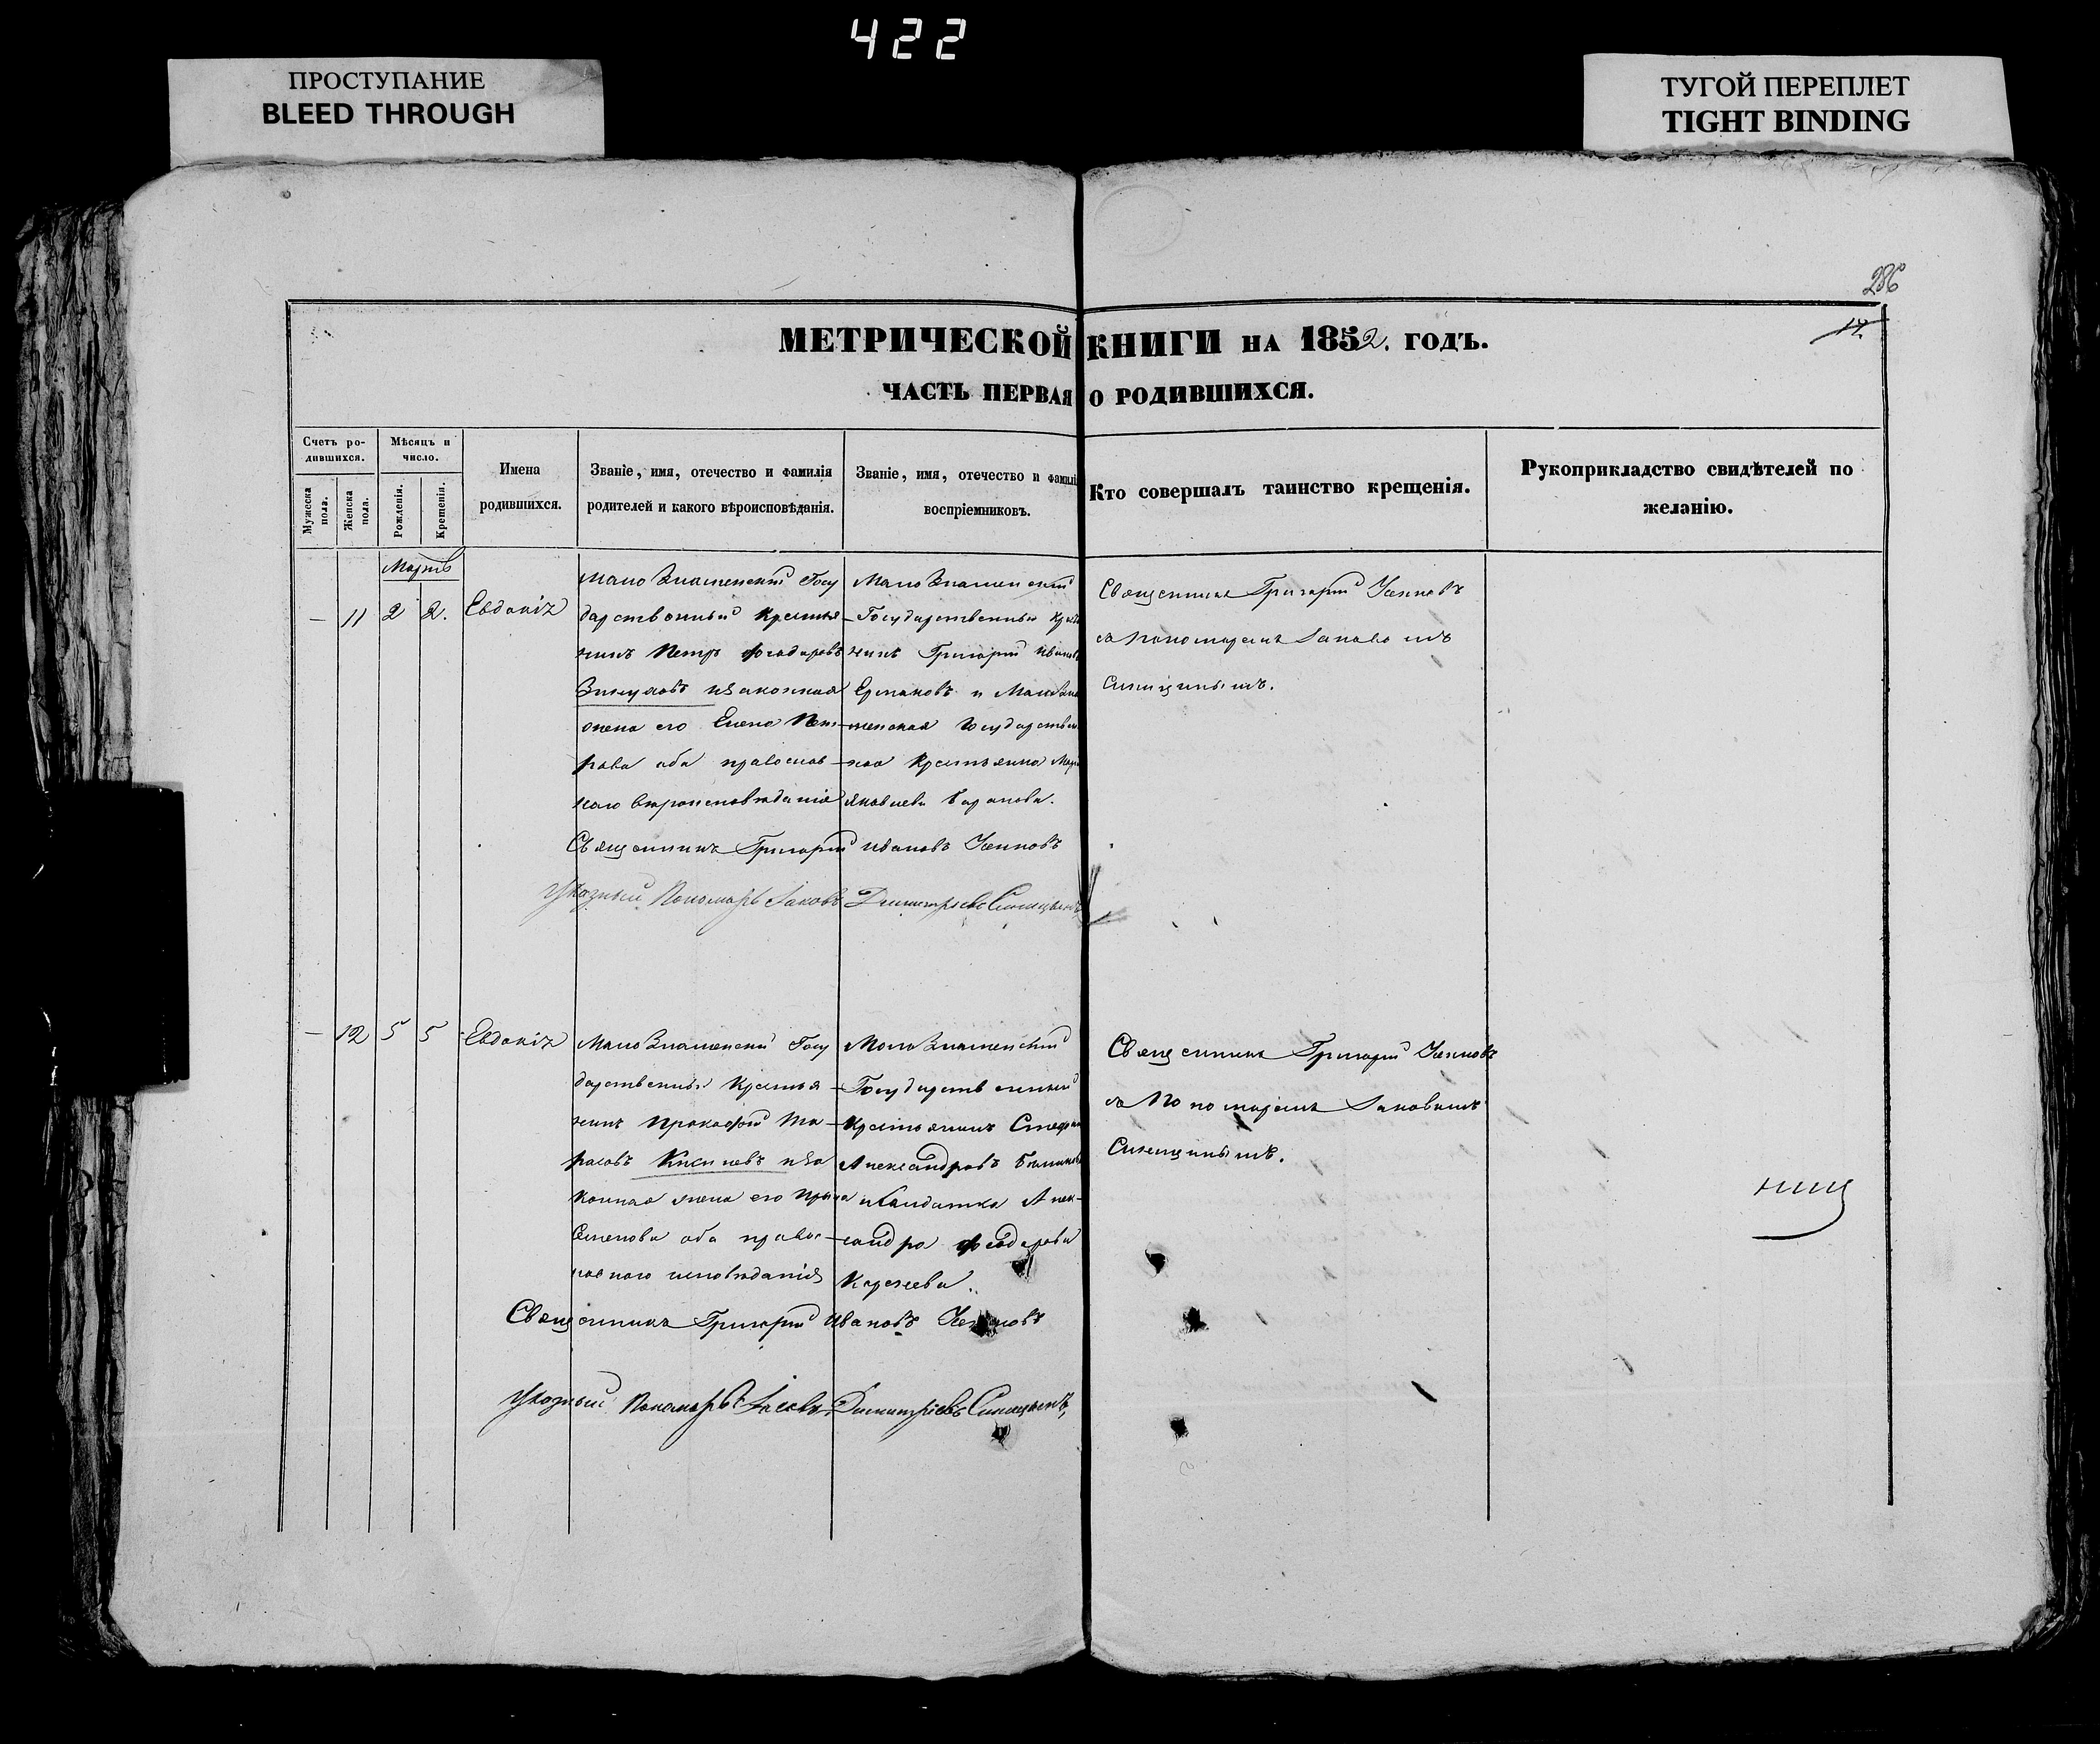 422
ПРОСТУПАНИЕ
BLEED THROUGH
ТУГОЙ ПЕРЕПЛЕТ
TIGHT BINDING
286
14.
МЕТРИЧЕСКОЙ КНИГИ НА 1852. ГОДЪ.
ЧАСТЬ ПЕРВАЯ О РОДИВШИХСЯ.
Счетъ ро-
дившихся.
Мужеска
пола.
Женска
пола.
Мѣсяцъ и
число.
Рожденія.
Крещенія.
Имена
родившихся.
Званіе, имя, отечество и фамилія
родителей и какого вѣроисповѣданія.
Званіе, имя, отечество и фамилія
воспріемниковъ.
Кто совершалъ таинство крещенія.
Рукоприкладство свидѣтелей по
желанію.
Мартъ
— 11 2 2. Евдокія
Мало Знаменскій Госу
дарственный Крестья
нинъ Петръ Феодоровъ
изаконная
жена его Елена Пет-
рова оба православ
наго вѣроисповѣданія
Мало Знаменскій
Государственный
нинъ Григорій
Ермаковъ и
менская Государствен
ная Крестьянка
Яковлева Баранова.
Священникъ Григорій
съ пономаремъ Іаковомъ
Синицынымъ.
Священникъ Григорій Ивановъ
Указный Пономарь Іаковъ Димитріевъ Синицынъ
— 12 5 5 Евдокія
Мало Знаменскій Госу
дарственный Крестья
нинъ Прокофій Та
расовъ иза
конная жена его
Семенова оба правос
лавнаго исповѣданія
Мало Знаменскій
Государственный
Крестьянинъ Стефанъ
Александровъ
и Солдатка Алек-
сандра Феодорова
Священникъ Григорій
съ Пономаремъ Іаковомъ
Синицынымъ.
Священникъ Григорій Ивановъ
Указный Пономарь Іаковъ Димитріевъ Синицынъ